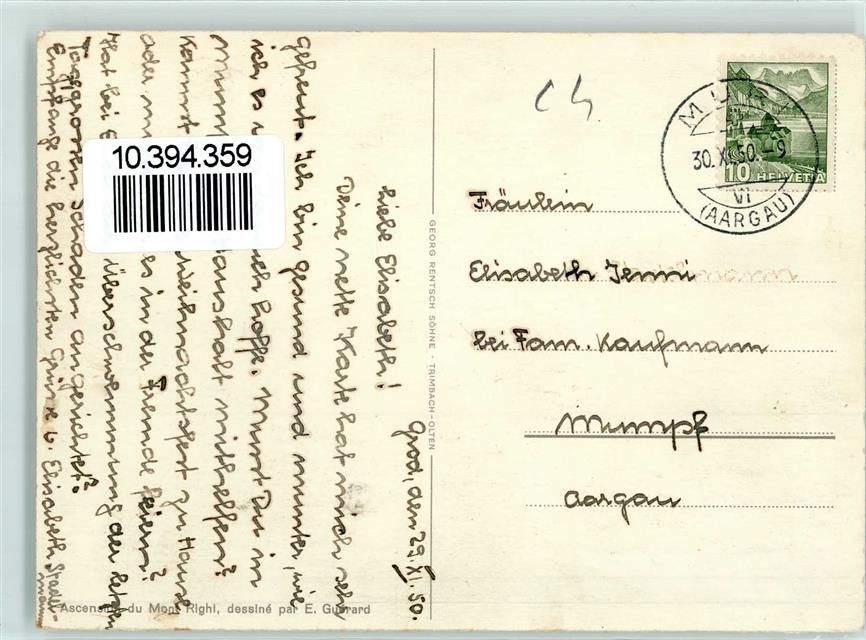 Grod, den 29. XI. 50.
Liebe Elisabeth!
Deine nette Karte hat mich sehr
gefreut. Ich bin gesund und munter, wie
ich es hoffe. Musst Du in
Mumpf Haushalt mithelfen?
Kannst Weihnachtsfest zu Hause
oder in der Fremde feiern?
Hat bei Überschwemmung der letzten
Tage grossen Schaden angerichtet?
Empfange die herzlichsten Grüsse v. Elisabeth
10.394.359
Ascension du Mont Righi, dessiné par E. Guérard
GEORG RENTSCH SÖHNE · TRIMBACH-OLTEN
10 HELVETIA
30. XI. 50. - 9
VI
(AARGAU)
Fräulein
Elisabeth Jenni
bei Fam. Kaufmann
Mumpf
Aargau